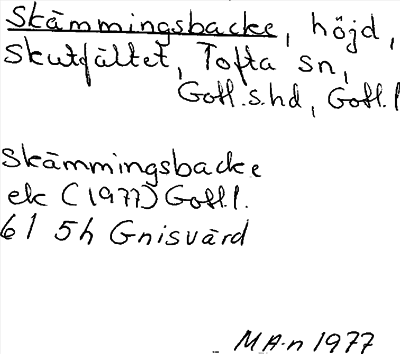 Skämmingsbacke, höjd,
Skutfältet, Tofta sn,
Gotl.s.hd, Gotl.l
Skämmingsbacke
ek (1977) Gotl.l.
61 5h Gnisvärd
MA-n 1977